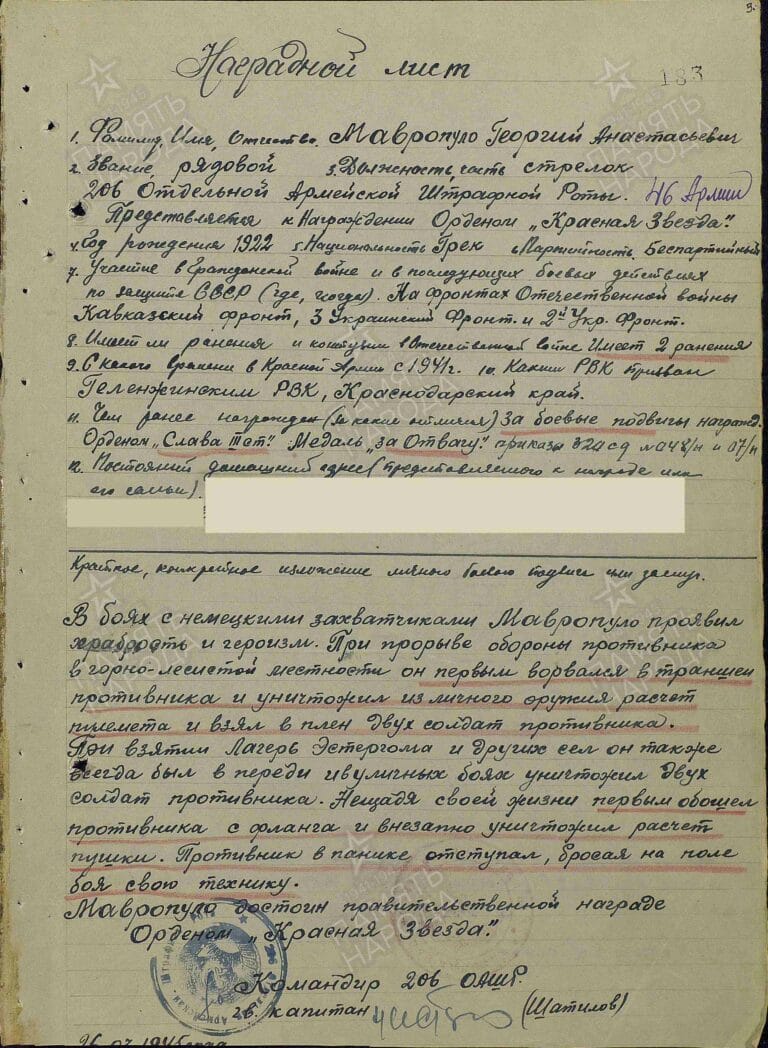 3.
183
Наградной лист
1. Фамилия, Имя, Отчество. Мавропуло Георгий Анастасьевич
2. Звание, рядовой 3. Должность, часть стрелок
206 Отдельной Армейской Штрафной Роты. 46 Армии
Представляется к Награждении Орденом „Красная Звезда".
4. Год рождения 1922 5. Национальность Грек 6. Партийность. Беспартийный
7. Участие в Гражданской войне и в последующих боевых действиях
по защите СССР (где, когда). На фронтах Отечественной войны
Кавказский фронт, 3 Украинский Фронт. и 2й Укр. Фронт.
8. Имеет ли ранения и контузии в Отечественной войне Имеет 2 ранения
9. С какого времени в Красной Армии с 1941г. 10. Каким РВК призван
Геленжинским РВК, Краснодарский край.
11. Чем ранее награжден (за какие отличия) За боевые подвиги награжд.
Орденом „Слава III ст" Медаль „за Отвагу." приказ 320 сд № 048/н и 07/н
12. Постоянный домашний адрес (представляемого к награде или
его семьи).
Краткое, конкретное изложение личного боевого подвига или заслуг.
В боях с немецкими захватчиками Мавропуло проявил
храбрость и героизм. При прорыве обороны противника
в горно-лесистой местности он первым ворвался в траншеи
противника и уничтожил из личного оружия расчет
пулемета и взял в плен двух солдат противника.
При взятии Лагерь Эстергома и других сел он также
всегда был в переди и в уличных боях уничтожил двух
солдат противника. Нещадя своей жизни первым обошел
противника с фланга и внезапно уничтожил расчет
пушки. Противник в панике отступал, бросая на поле
боя свою технику.
Мавропуло достоин правительственной награде
Орденом „Красная Звезда."
Командир 206 ОАШР.
гв. капитан (Шатилов)